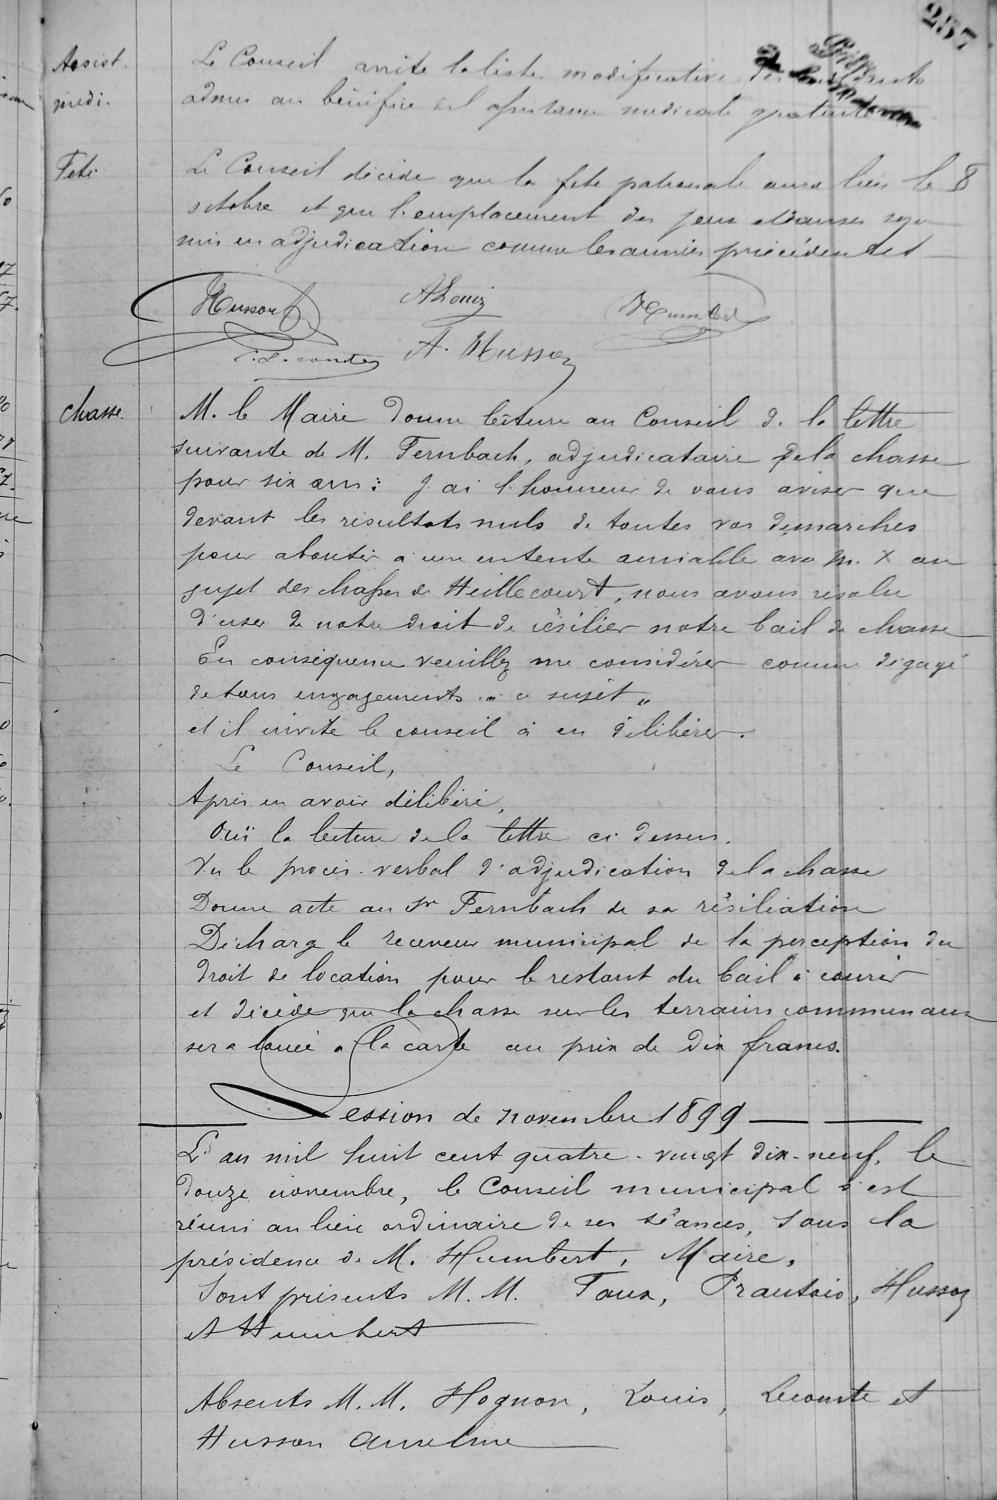 257
Assist. Le Conseil arrête la liste modificative
médi. admis au bénéfice de l'assistance médicale gratuite
Fête Le Conseil décide que la fête patronale aura lieu le 8
octobre et que l'emplacement des jeux et danses sera
mis en adjudication comme les années précédentes
Husson ALouis Humbert
Lecomte A. Husson
Chasse. M. le Maire donne lecture au Conseil de la lettre
suivante de M. Fernbach, adjudicataire de la chasse
pour six ans : J'ai l'honneur de vous aviser que
devant les résultats nuls de toutes vos démarches
pour aboutir à une entente amiable avec M. X au
sujet des chasses de Heillecourt, nous avons résolu
d'user de notre droit de résilier notre bail de chasse
En conséquence veuillez me considérer comme dégagé
de tous engagements à ce sujet "
et il invite le conseil à en délibérer.
Le Conseil,
Après en avoir délibéré,
Ouï la lecture de la lettre ci dessus.
Vu le procès-verbal d'adjudication de la chasse
Donne acte au Sr Fernbach de sa résiliation
Décharge le receveur municipal de la perception du
droit de location pour le restant du bail à courir
et décide que la chasse sur les terrains communaux
sera louée à la carte au prix de dix francs.
Session de novembre 1899
L'an mil huit cent quatre-vingt dix-neuf, le
douze novembre, le Conseil municipal s'est
réuni au lieu ordinaire de ses séances, sous la
présidence de M. Humbert, Maire.
Sont présents M. M. Toux, Frantois, Husson
et Humbert
Absents M. M. Hognon, Louis, Lecomte et
Husson Anselme